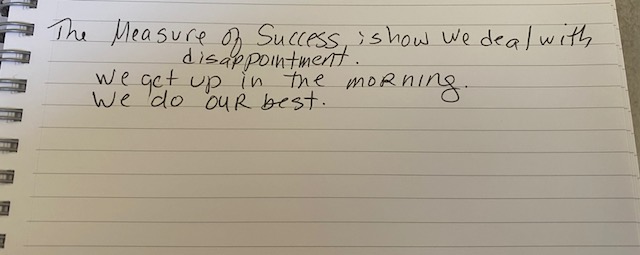 The Measure of Success, is how we deal with
disappointment.
We get up in the morning.
We do our best.